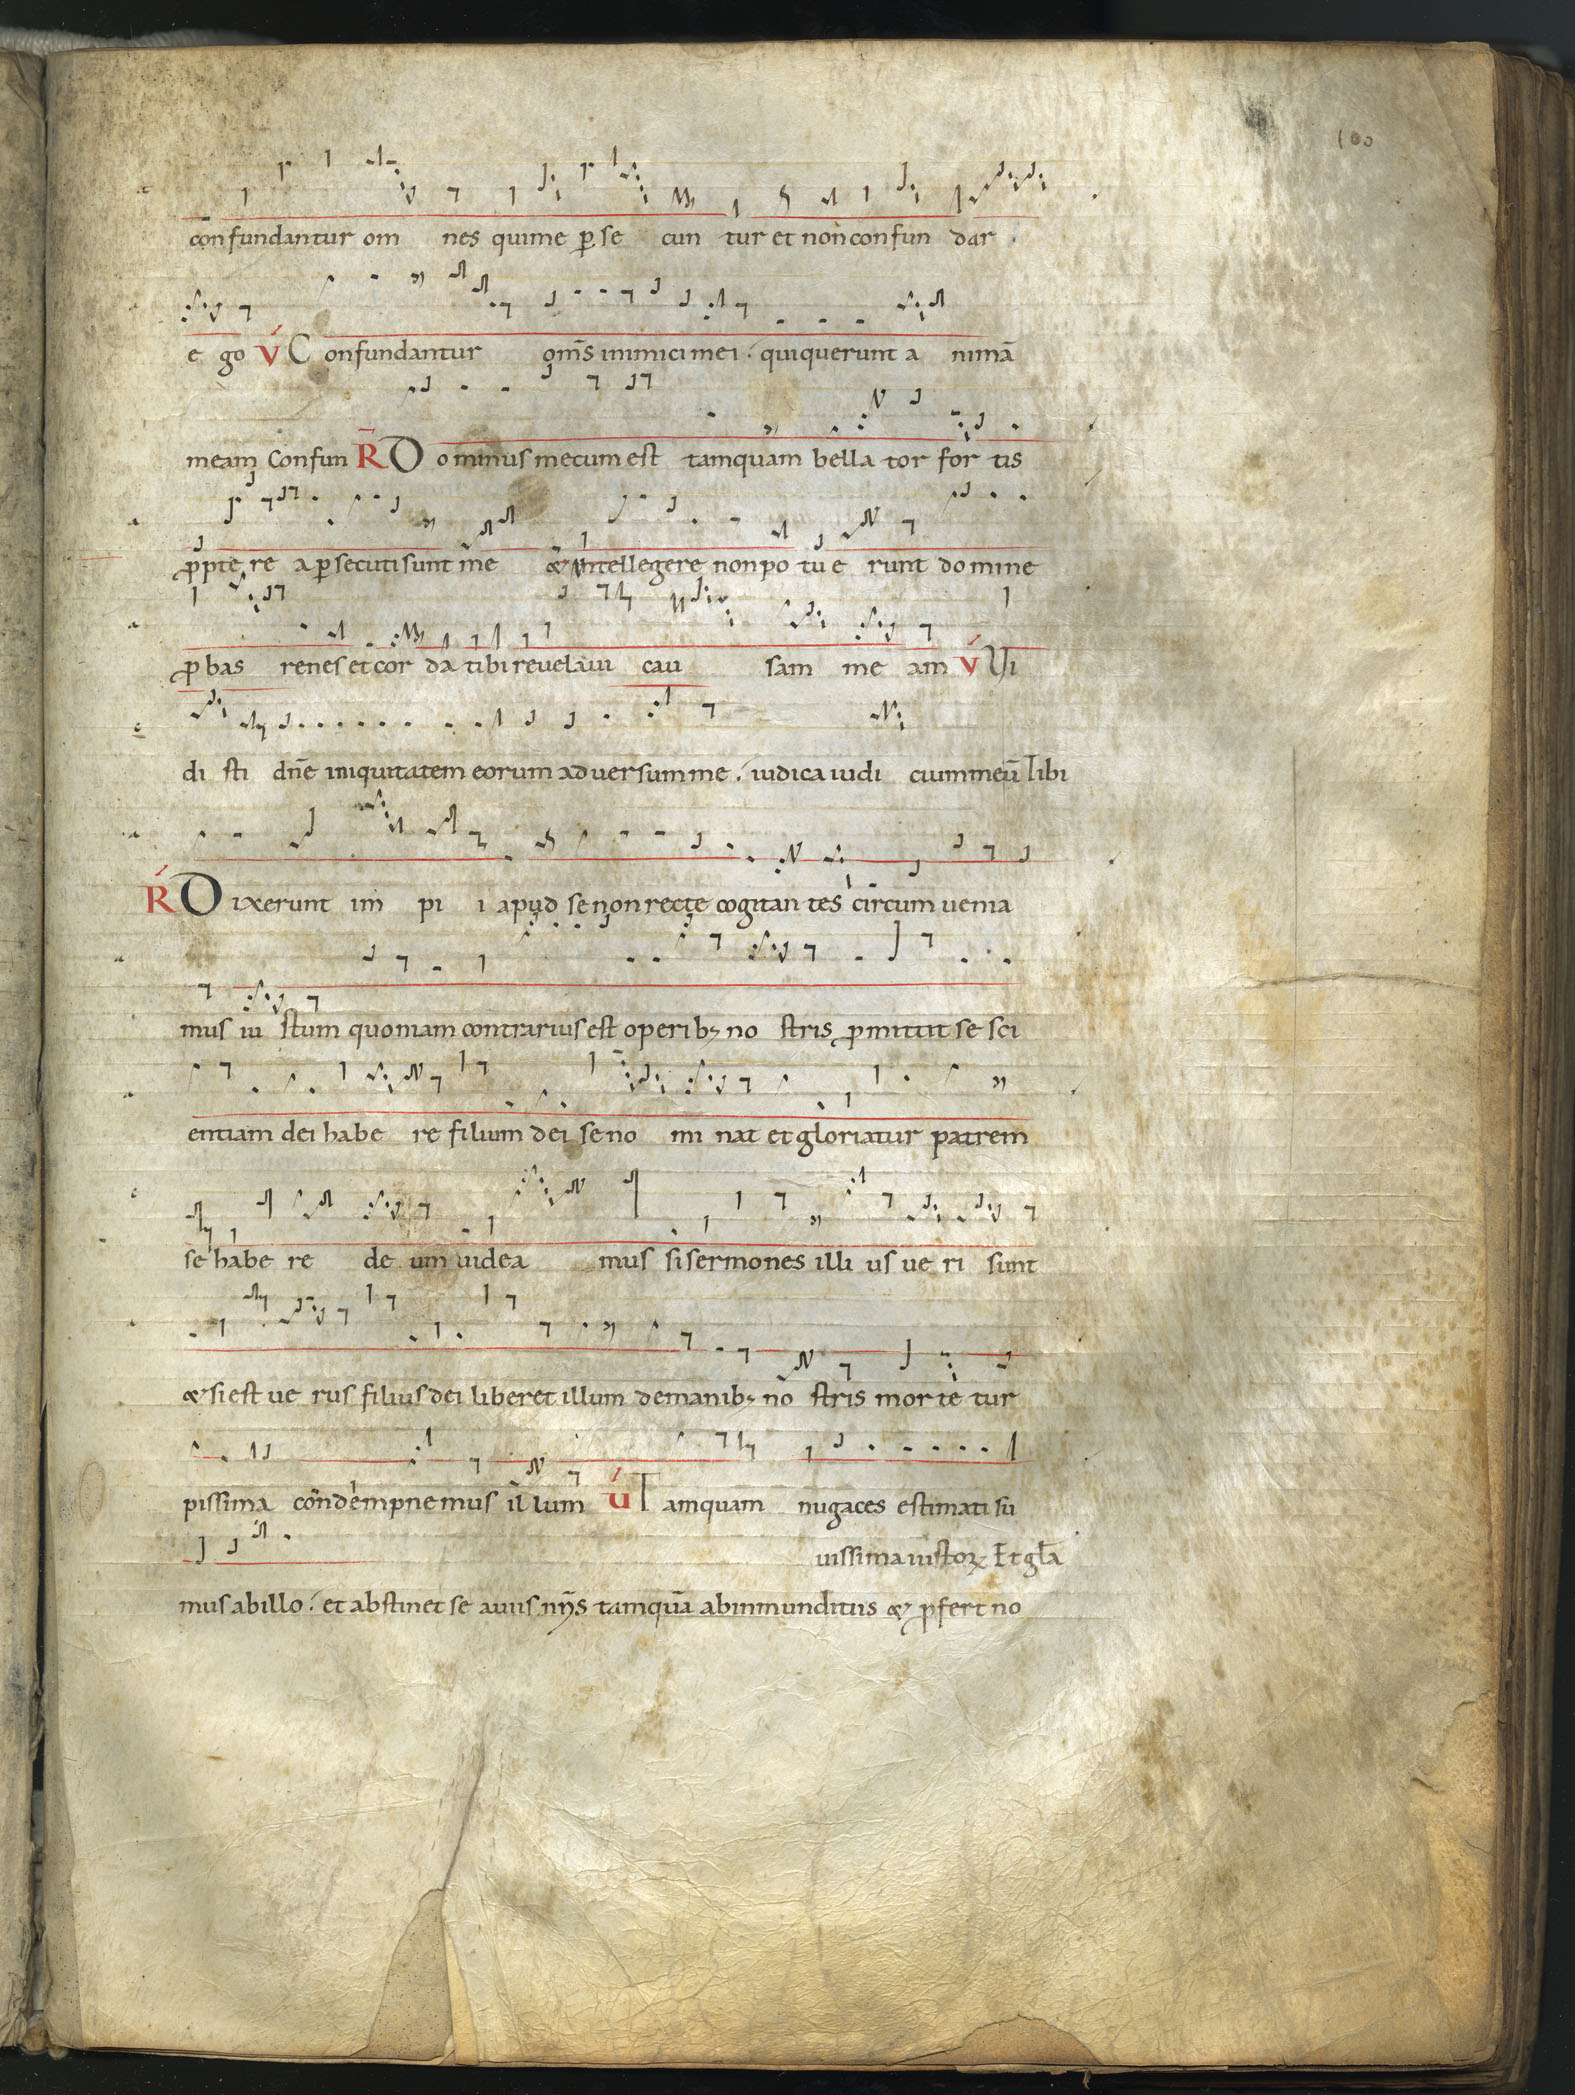 100
con fundantur om nes quime p̲ se cun tur et non confun dar .
e go V́ C onfundantur om̄s inimici mei . qui querunt a nimā
meam Confun R̄ D ominus mecum est tamquam bella tor for tis
p̱pte re a p̲secuti sunt me & intellegere non po tu e runt domine
p̱bas renes et cor da tibi revelavi cau sam me am V́ Vi
di sti dn̄e iniquitatem eorum adversum me . iudica iudi cium meū Tibi
Ŕ D ixerunt im pi i apud se non recte cogitan tes circum uenia
mus iu stum quoniam contrarius est operibꝫ no stris p̱mittit se sci
entiam dei habe re filium dei se no mi nat et gloriatur patrem
se habe re de um uidea mus si sermones illi us ue ri sunt
& si est ue rus filius dei liberet illum de manibꝫ no stris mor te tur
pissima condempnemus il lum Ú T amquam nugaces estimati su
uissima iustoꝝ Et gla̅
mus ab illo . et abstinet se a uiis nr̄is tamquā ab inmunditiis & p̱fert no